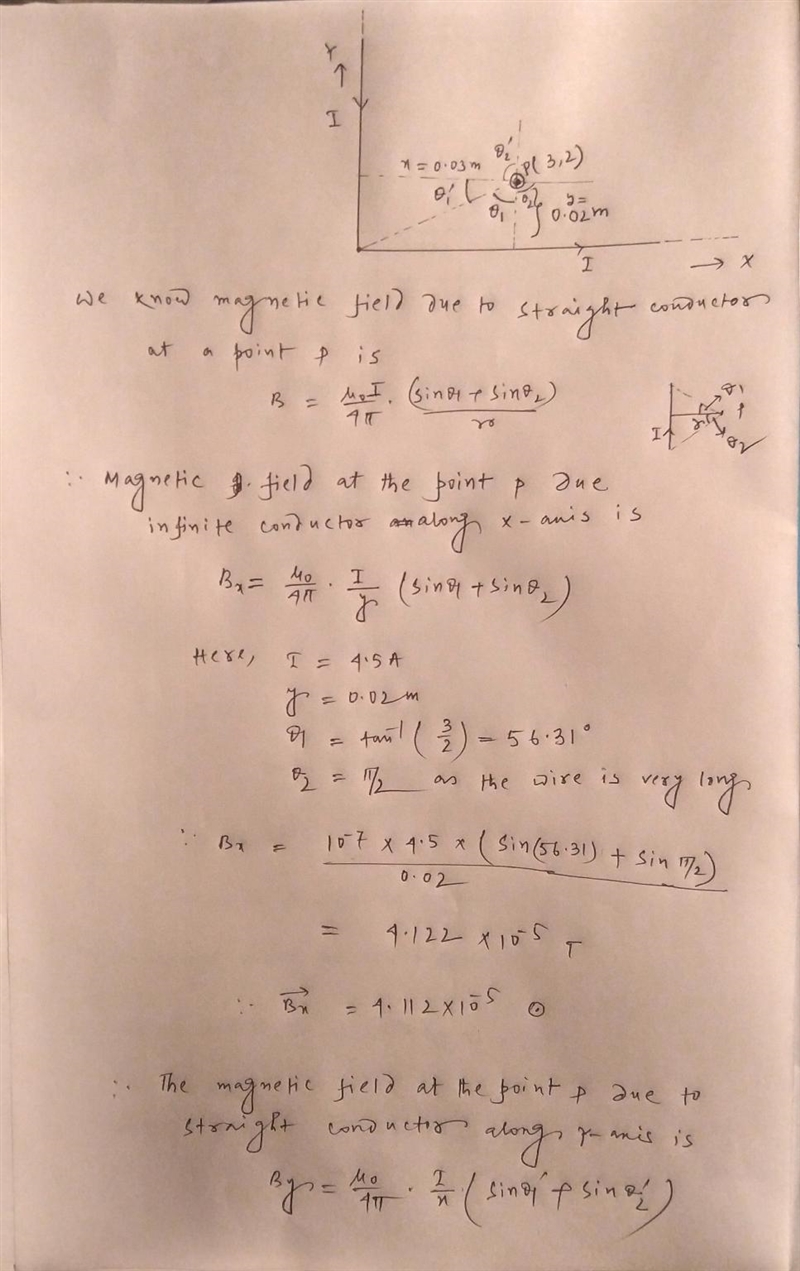 Y
↑
I
θ₂'
P(3,2)
x = 0.03m
θ₁'
θ₁
θ₂
y =
0.02m
I
→ X
We know magnetic field due to straight conductor
at a point p is
B = μ₀I/4π . (sinθ₁ + sinθ₂)/r
θ1
p
r
I
θ2
∴ Magnetic field at the point p due
infinite conductor along x-axis is
Bx = μ₀/4π . I/y (sinθ₁ + sinθ₂)
Here, I = 4.5A
y = 0.02m
θ1 = tan⁻¹(3/2) = 56.31°
θ₂ = π/2 as the wire is very long
∴ Bx = 10⁻⁷ x 4.5 x (sin(56.31) + sin π/2)/0.02
= 4.122 x 10⁻⁵ T
∴ B⃗x = 4.112 x 10⁻⁵ ⊙
∴ The magnetic field at the point p due to
straight conductor along y-axis is
By = μ₀/4π . I/x (sinθ₁' + sinθ₂')